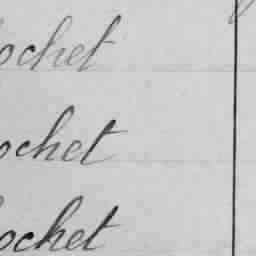 ochet
ochet
ochet